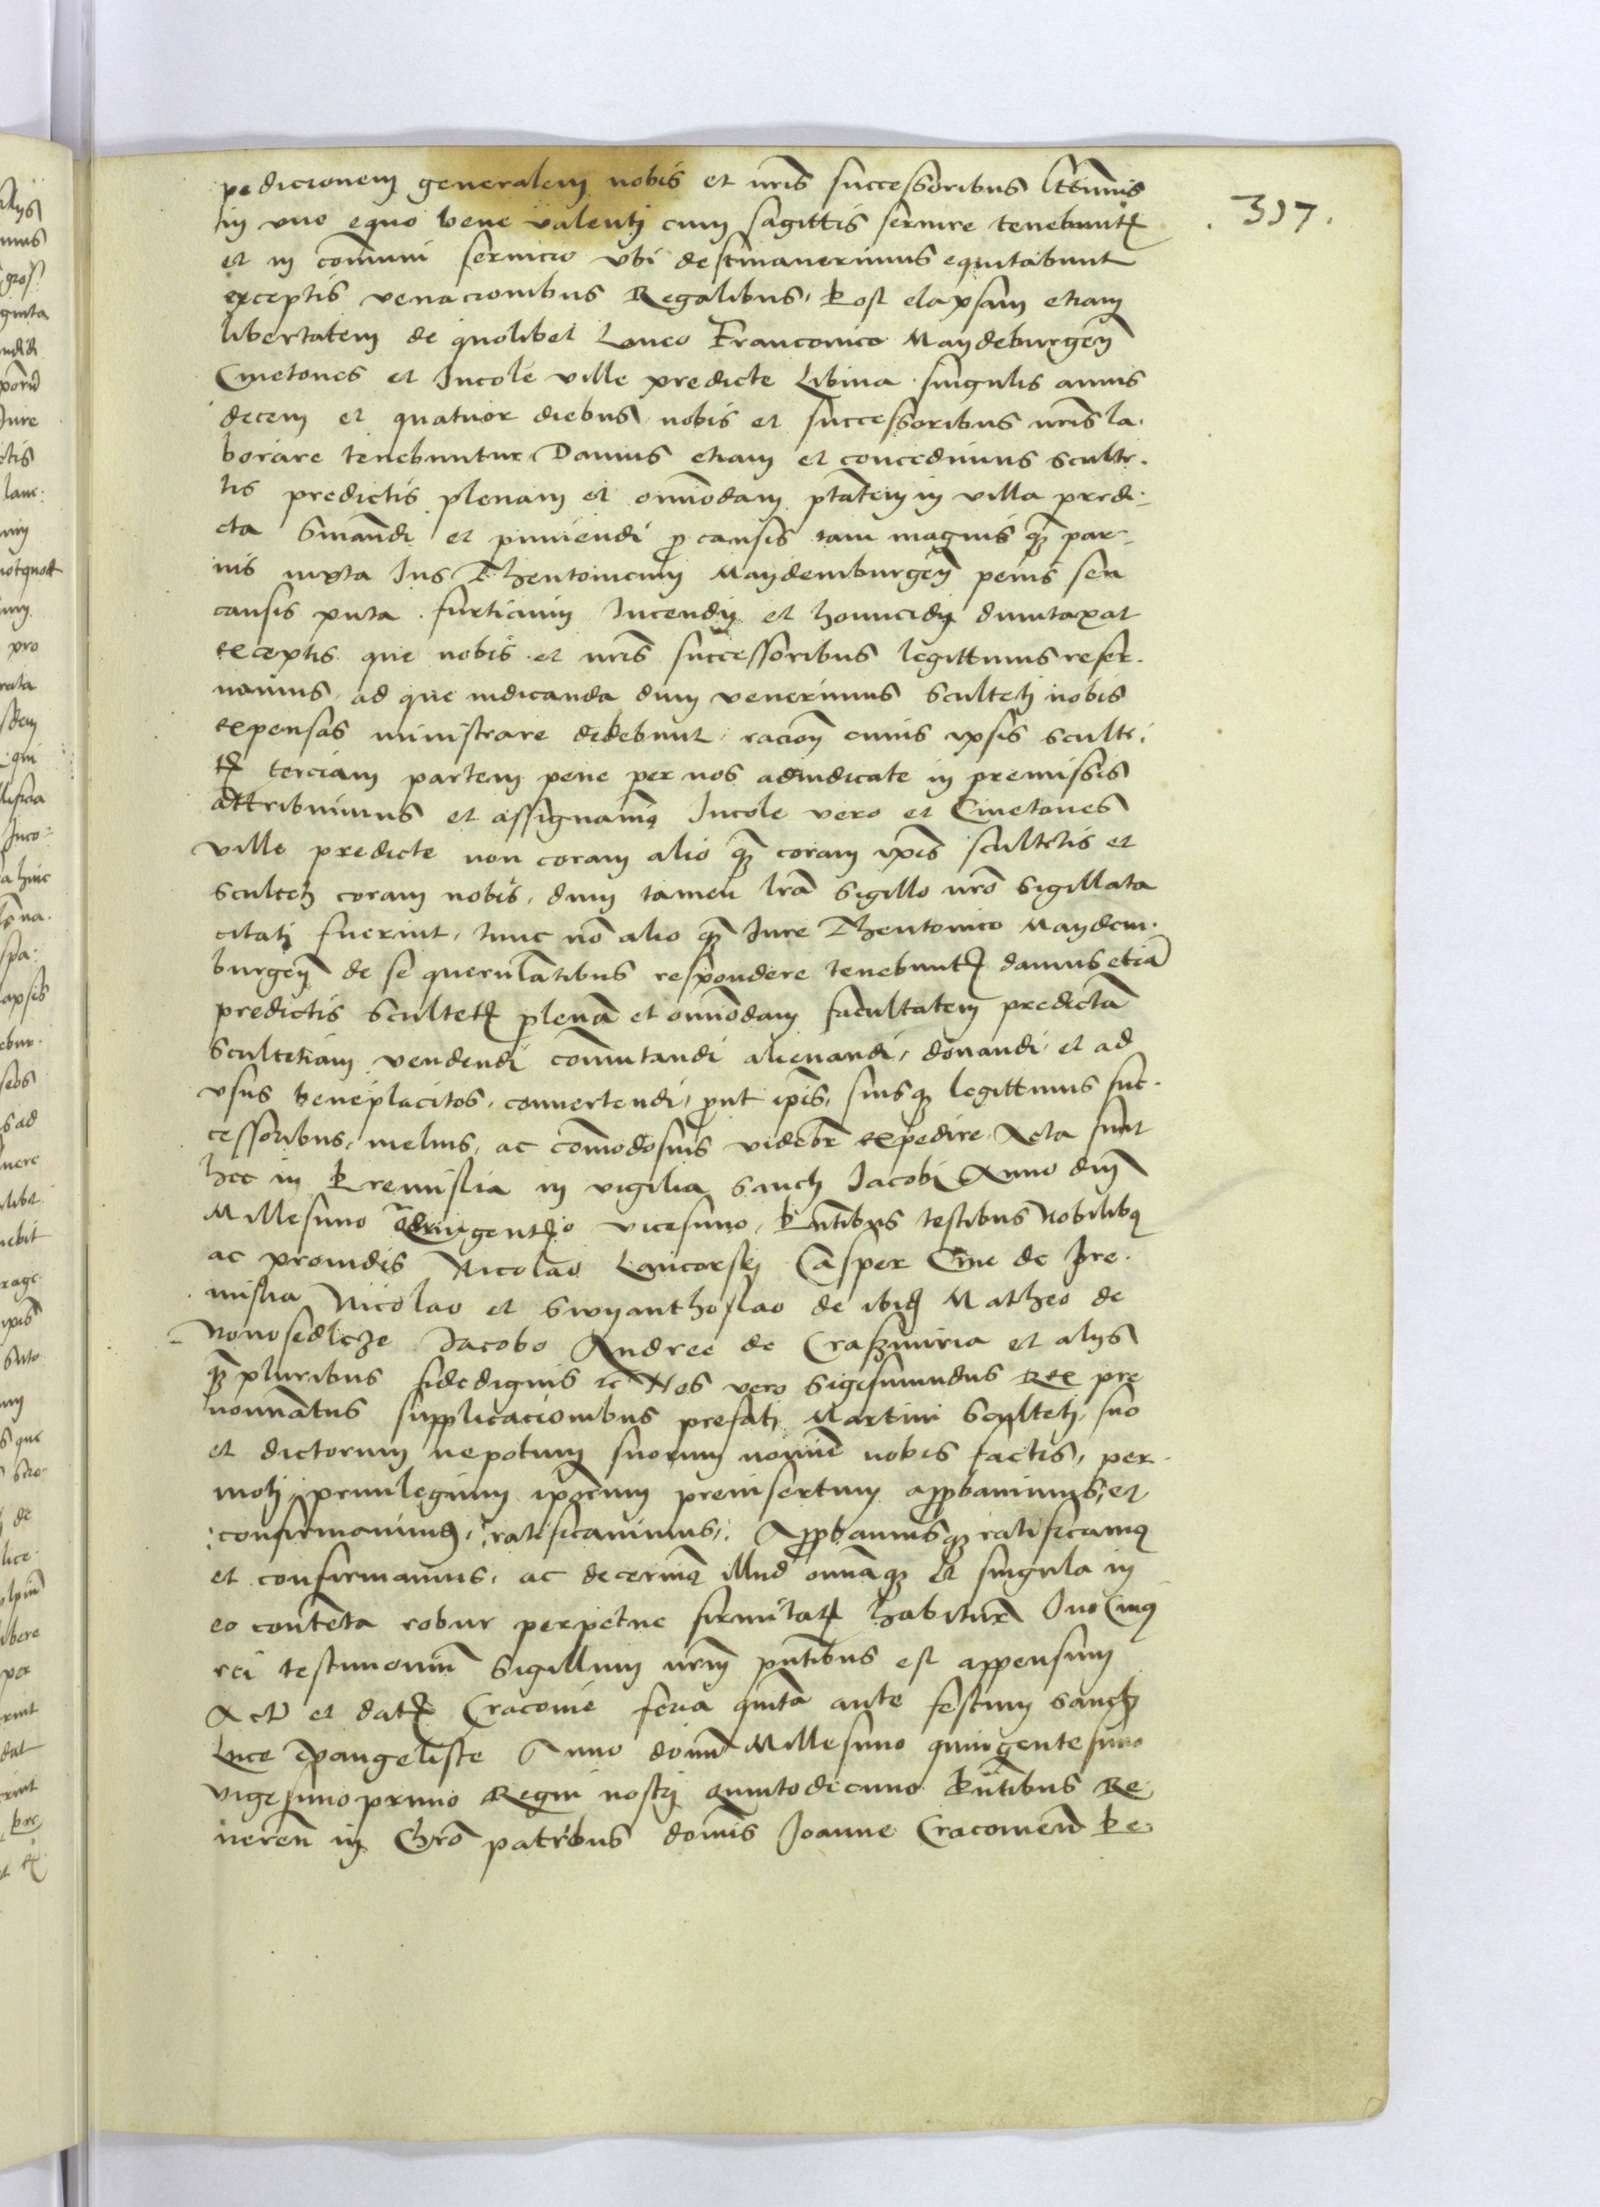 pedicionem generalem nobis et nris successoribus lttimis
in vno equo bene valenti cum sagittis seruire tenebuntr
et in comuni seruicio vbi destinauerimus equitabunt
exceptis venacionibus Regalibus, Post elapsam etiam
libertatem de quolibet Laneo Franconico Maydeburgen
Cmetones et Incole ville predicte Libina singulis annis
decem et quatuor diebus nobis et successoribus nris la-
borare tenebuntur Damus etiam et concedimus sculte-
tis predictis plenam et omnodam ptatem in villa predi-
cta Smandi et puniendi p causis tam magnis q̃ par-
uis iuxta Ius Thentonicum Maydemburgen penis seu
causis puta furticinij Incendij et homicidij dumtaxat
exceptis que nobis et nris successoribus legittimis reser-
uamus, ad que iudicanda dum venerimus sculteti nobis
expensas ministrare debebunt, racion cuius ipsis sculte-
tis terciam partem pene per nos adiudicate in premissis
attribuimus et assignamus Incole vero et Cmetones
ville predicte non coram alio q̃ coram ipis scultetis et
sculteti coram nobis, dum tamen lra sigillo nro sigillata
citati fuerint, tunc no alio q̃ Iure Thentonico Maydem-
burgen de se querulatibus respondere tenebuntr damus etia
predictis scultetis plena et omnodam facultatem predicta
Scultetiam vendendi comutandi alienandi, donandi, et ad
vsus beneplacitos, conuertendi, prout ipis, suisq legittimis suc-
cessoribus, melius, ac comodosius videbr expedire, Acta sunt
hec in Premislia in vigilia sancti Jacobi Anno dni
Millesimo vicesimo, Pntibus testibus Nobilibus
ac prouidis Nicolao Casper Ciue de Pre-
mislia Nicolao et Swyanthoslao de ibid Matheo de
Nouosedlcze Jacobo Andree de Craszmiria et alijs
q̃ pluribus fidedignis etc Nos vero Sigismundus Rex pre
nominatus supplicacionibus prefati Martini Sculteti, suo
et dictorum nepotum suorum nomine nobis factis, per-
moti, priuilegium iporum preinsertum approbauimus, et
confirmauimus, ratificauimus, Approbamusq ratificamus
et confirmamus, ac decernimus illud omniaq et singula in
eo contenta robur perpetue firmitatis habitura In Cuius
rei testimonium Sigillum nrm pntibus est appensum
Actum et datum Cracouie feria quinta ante festum sancti
Luce Euangeliste Anno domini Millesimo quingentesimo
vigesimo primo Regni nostri Quintodecimo Pntibus Re-
ueren in Chro patribus domis Joanne Cracouien Pe-
. 317.